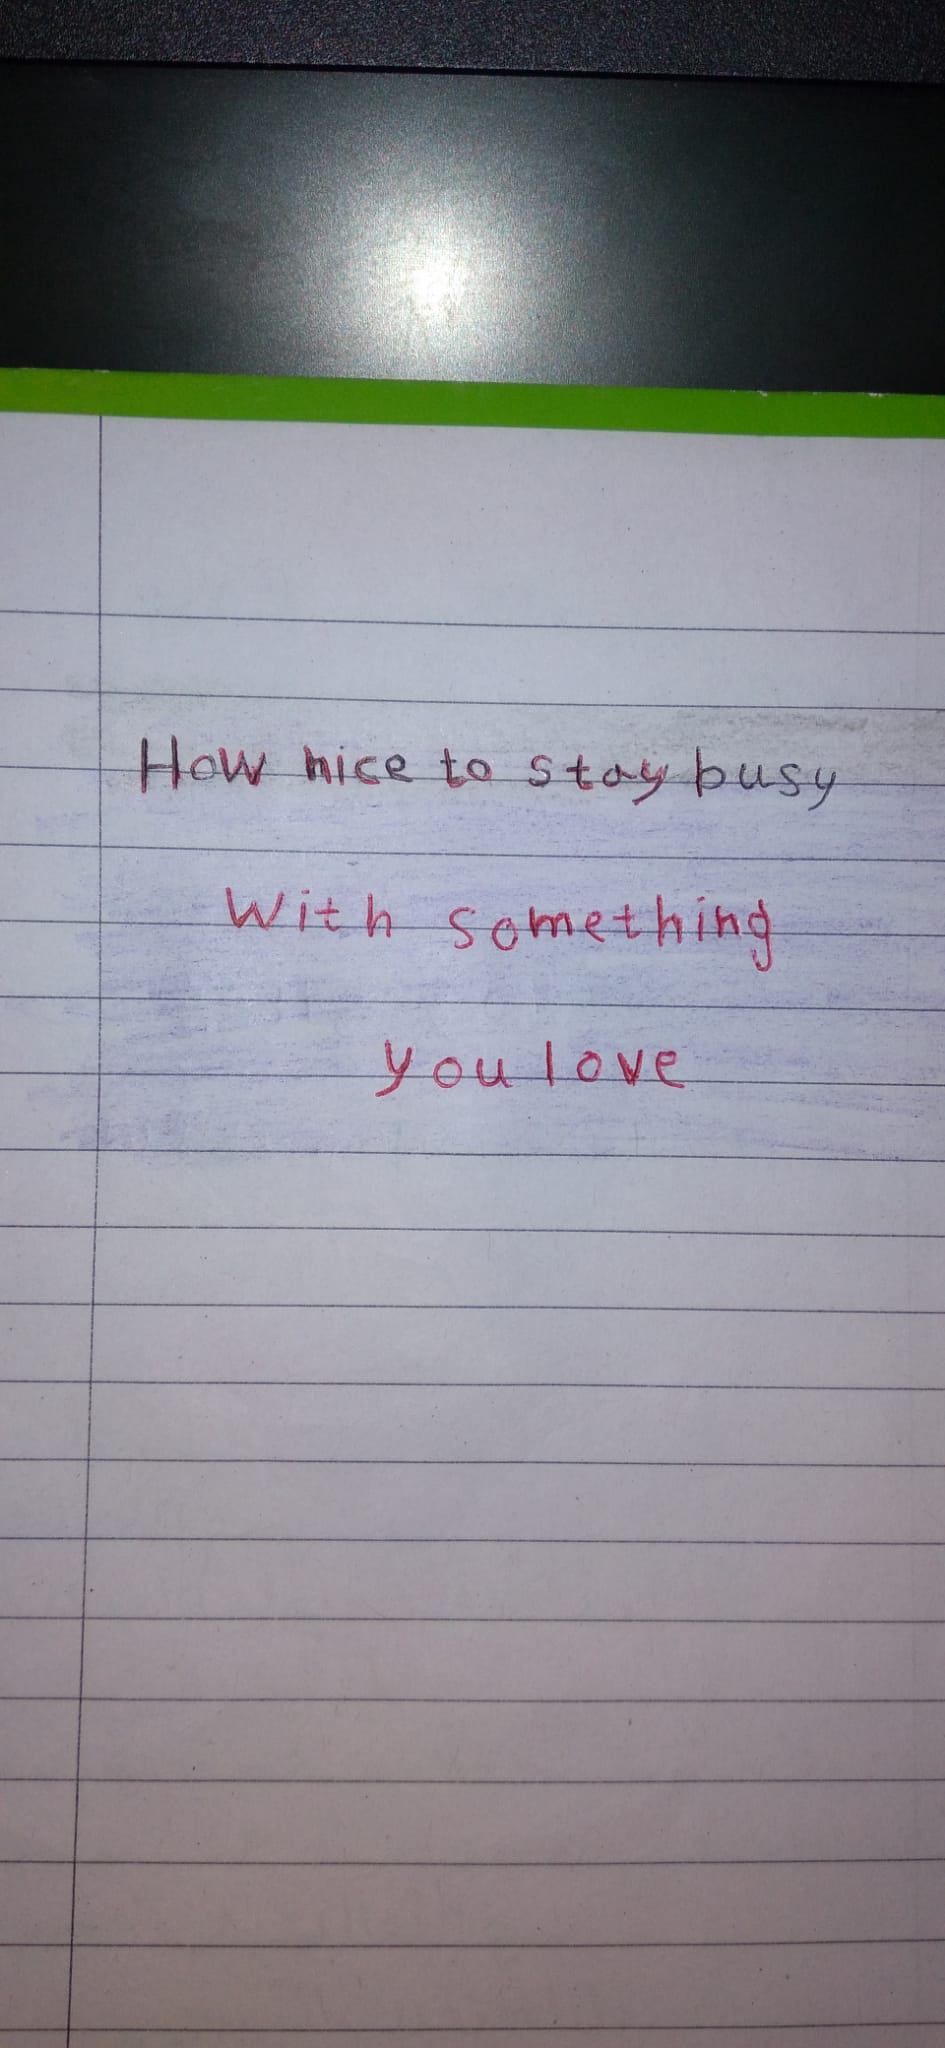 How nice to stay busy
With something
you love